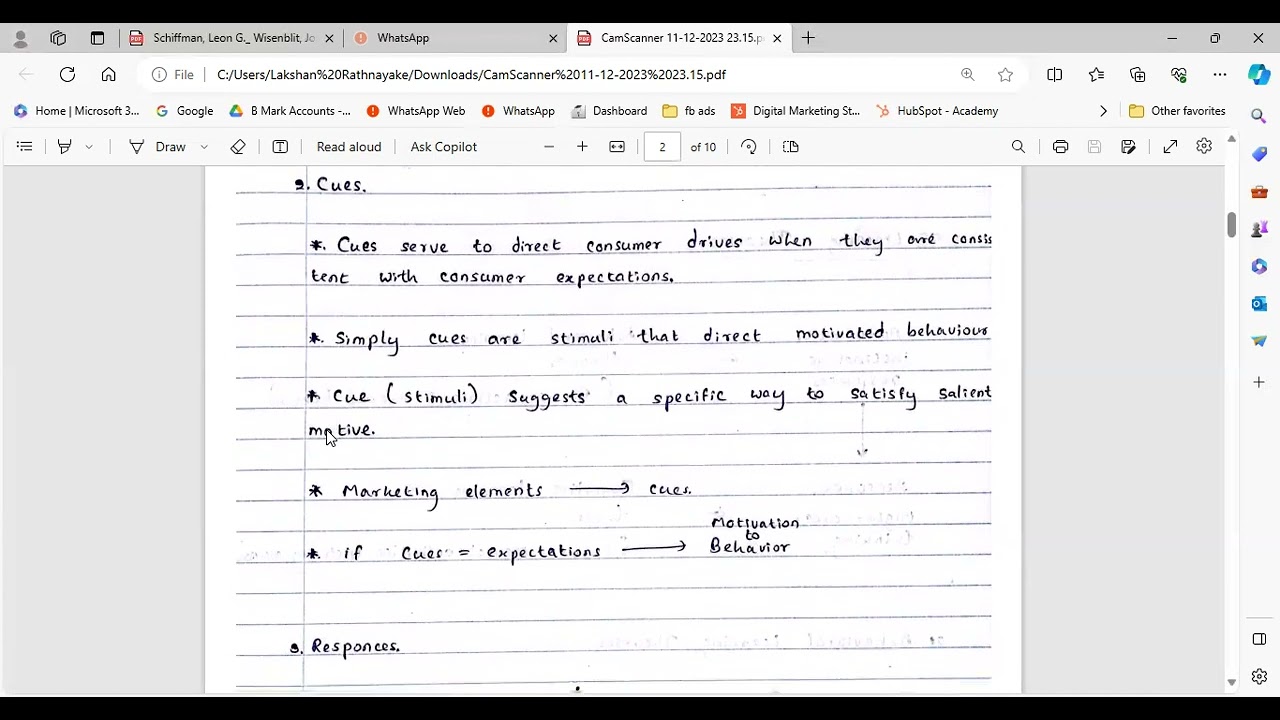 Schiffman, Leon G._ Wisenblit, Jo
WhatsApp
CamScanner 11-12-2023 23.15.p
File
C:/Users/Lakshan%20Rathnayake/Downloads/CamScanner%2011-12-2023%2023.15.pdf
Home | Microsoft 3...
Google
B Mark Accounts -...
WhatsApp Web
WhatsApp
Dashboard
fb ads
Digital Marketing St...
HubSpot - Academy
Other favorites
Draw
Read aloud
Ask Copilot
2
of 10
2. Cues.
*. Cues serve to direct consumer drives when they are consis
tent with consumer expectations.
*. Simply cues are stimuli that direct motivated behaviour
* Cue (stimuli) suggests a specific way to satisfy salient
motive.
* Marketing elements → cues.
* if cues = expectations → Motivation
to
Behavior
3. Responces.